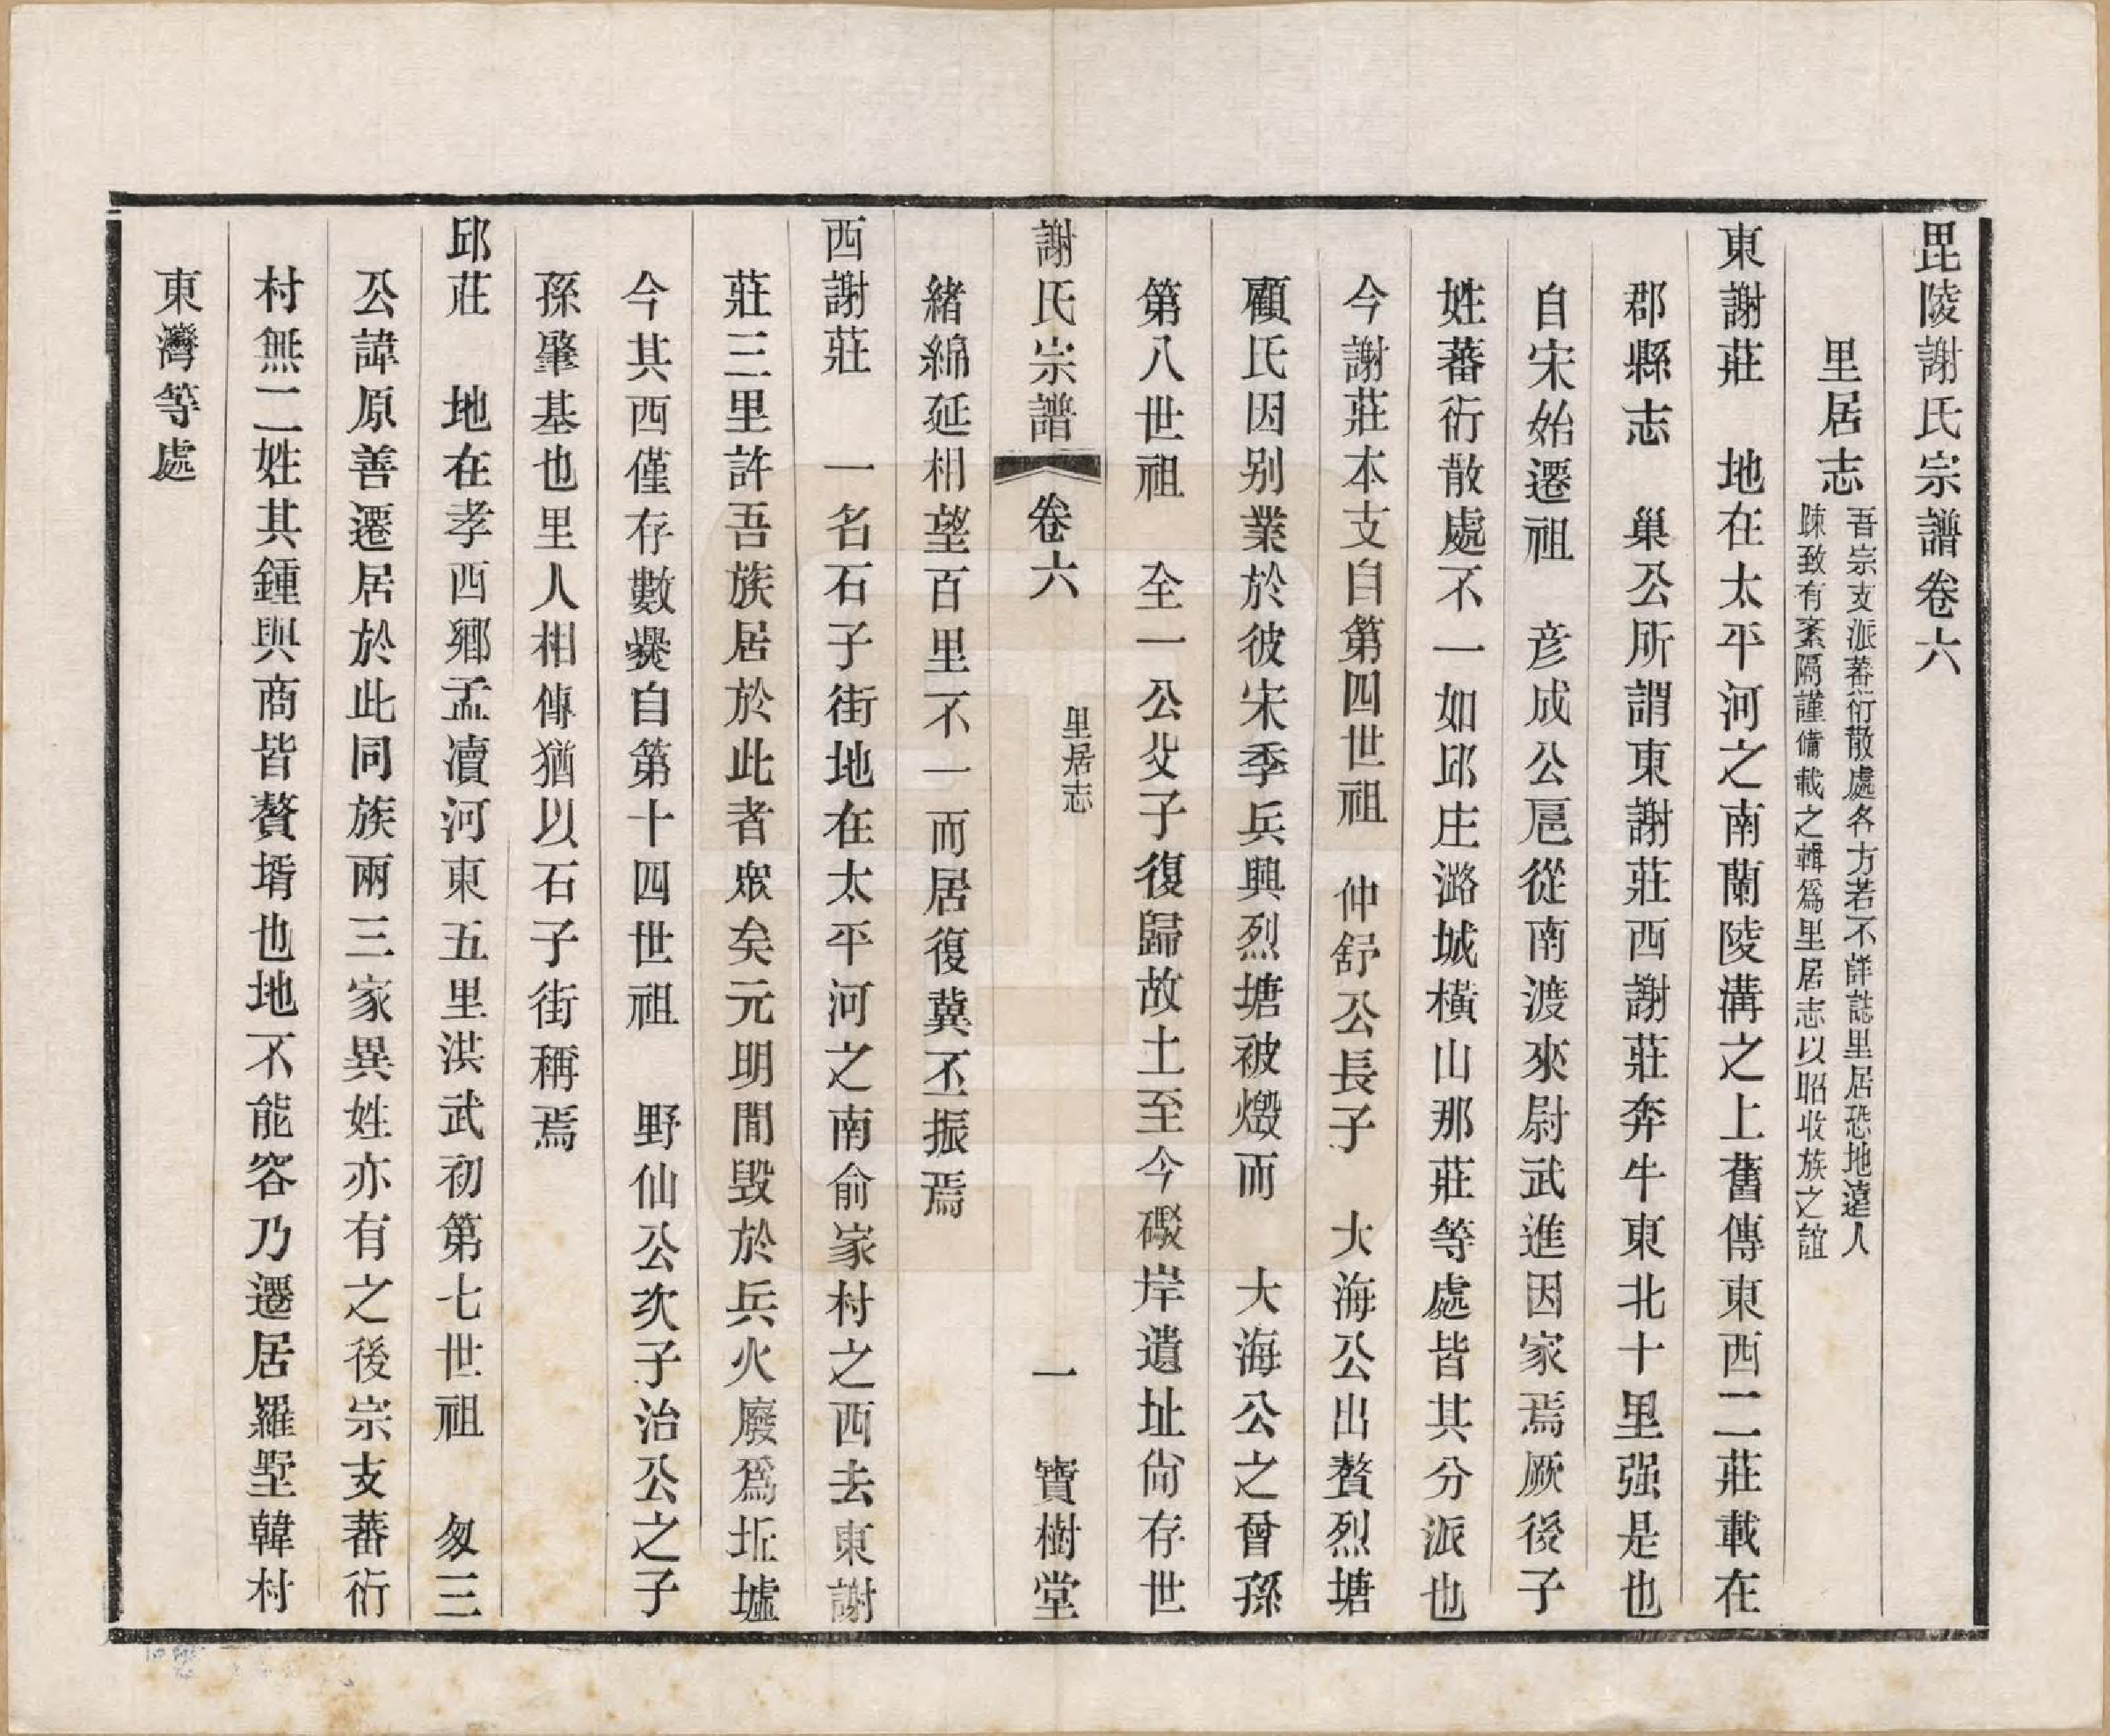 毘陵謝氏宗譜卷六
里居志
吾宗支派蕃衍散處各方若不詳誌里居恐地遠人
踈致有紊隔謹備載之輯爲里居志以昭收族之誼
東謝莊　地在太平河之南蘭陵溝之上舊傳東西二莊載在
郡縣志　巢公所謂東謝莊西謝莊奔牛東北十里强是也
自宋始遷祖　彦成公扈從南渡來尉武進因家焉厥後子
姓蕃衍散處不一如邱庄潞城橫山那莊等處皆其分派也
今謝莊本支自第四世祖　仲舒公長子　大海公出贅烈塘
顧氏因别業於彼宋季兵興烈塘被燬而　大海公之曾孫
第八世祖　全一公父子復歸故土至今礟岸遺址尙存世
謝氏宗譜　卷六　里居志　一　寶樹堂
緒綿延相望百里不一而居復冀丕振焉
西謝莊　一名石子街地在太平河之南俞家村之西去東謝
莊三里許吾族居於此者眾矣元明間毁於兵火廢爲坵墟
今其西僅存數爨自第十四世祖　野仙公次子治公之子
孫肇基也里人相傳猶以石子街稱焉
邱莊　地在孝西鄉孟凟河東五里洪武初第七世祖　匆三
公諱原善遷居於此同族兩三家異姓亦有之後宗支蕃衍
村無二姓其鍾與商皆贅壻也地不能容乃遷居羅墅韓村
東灣等處